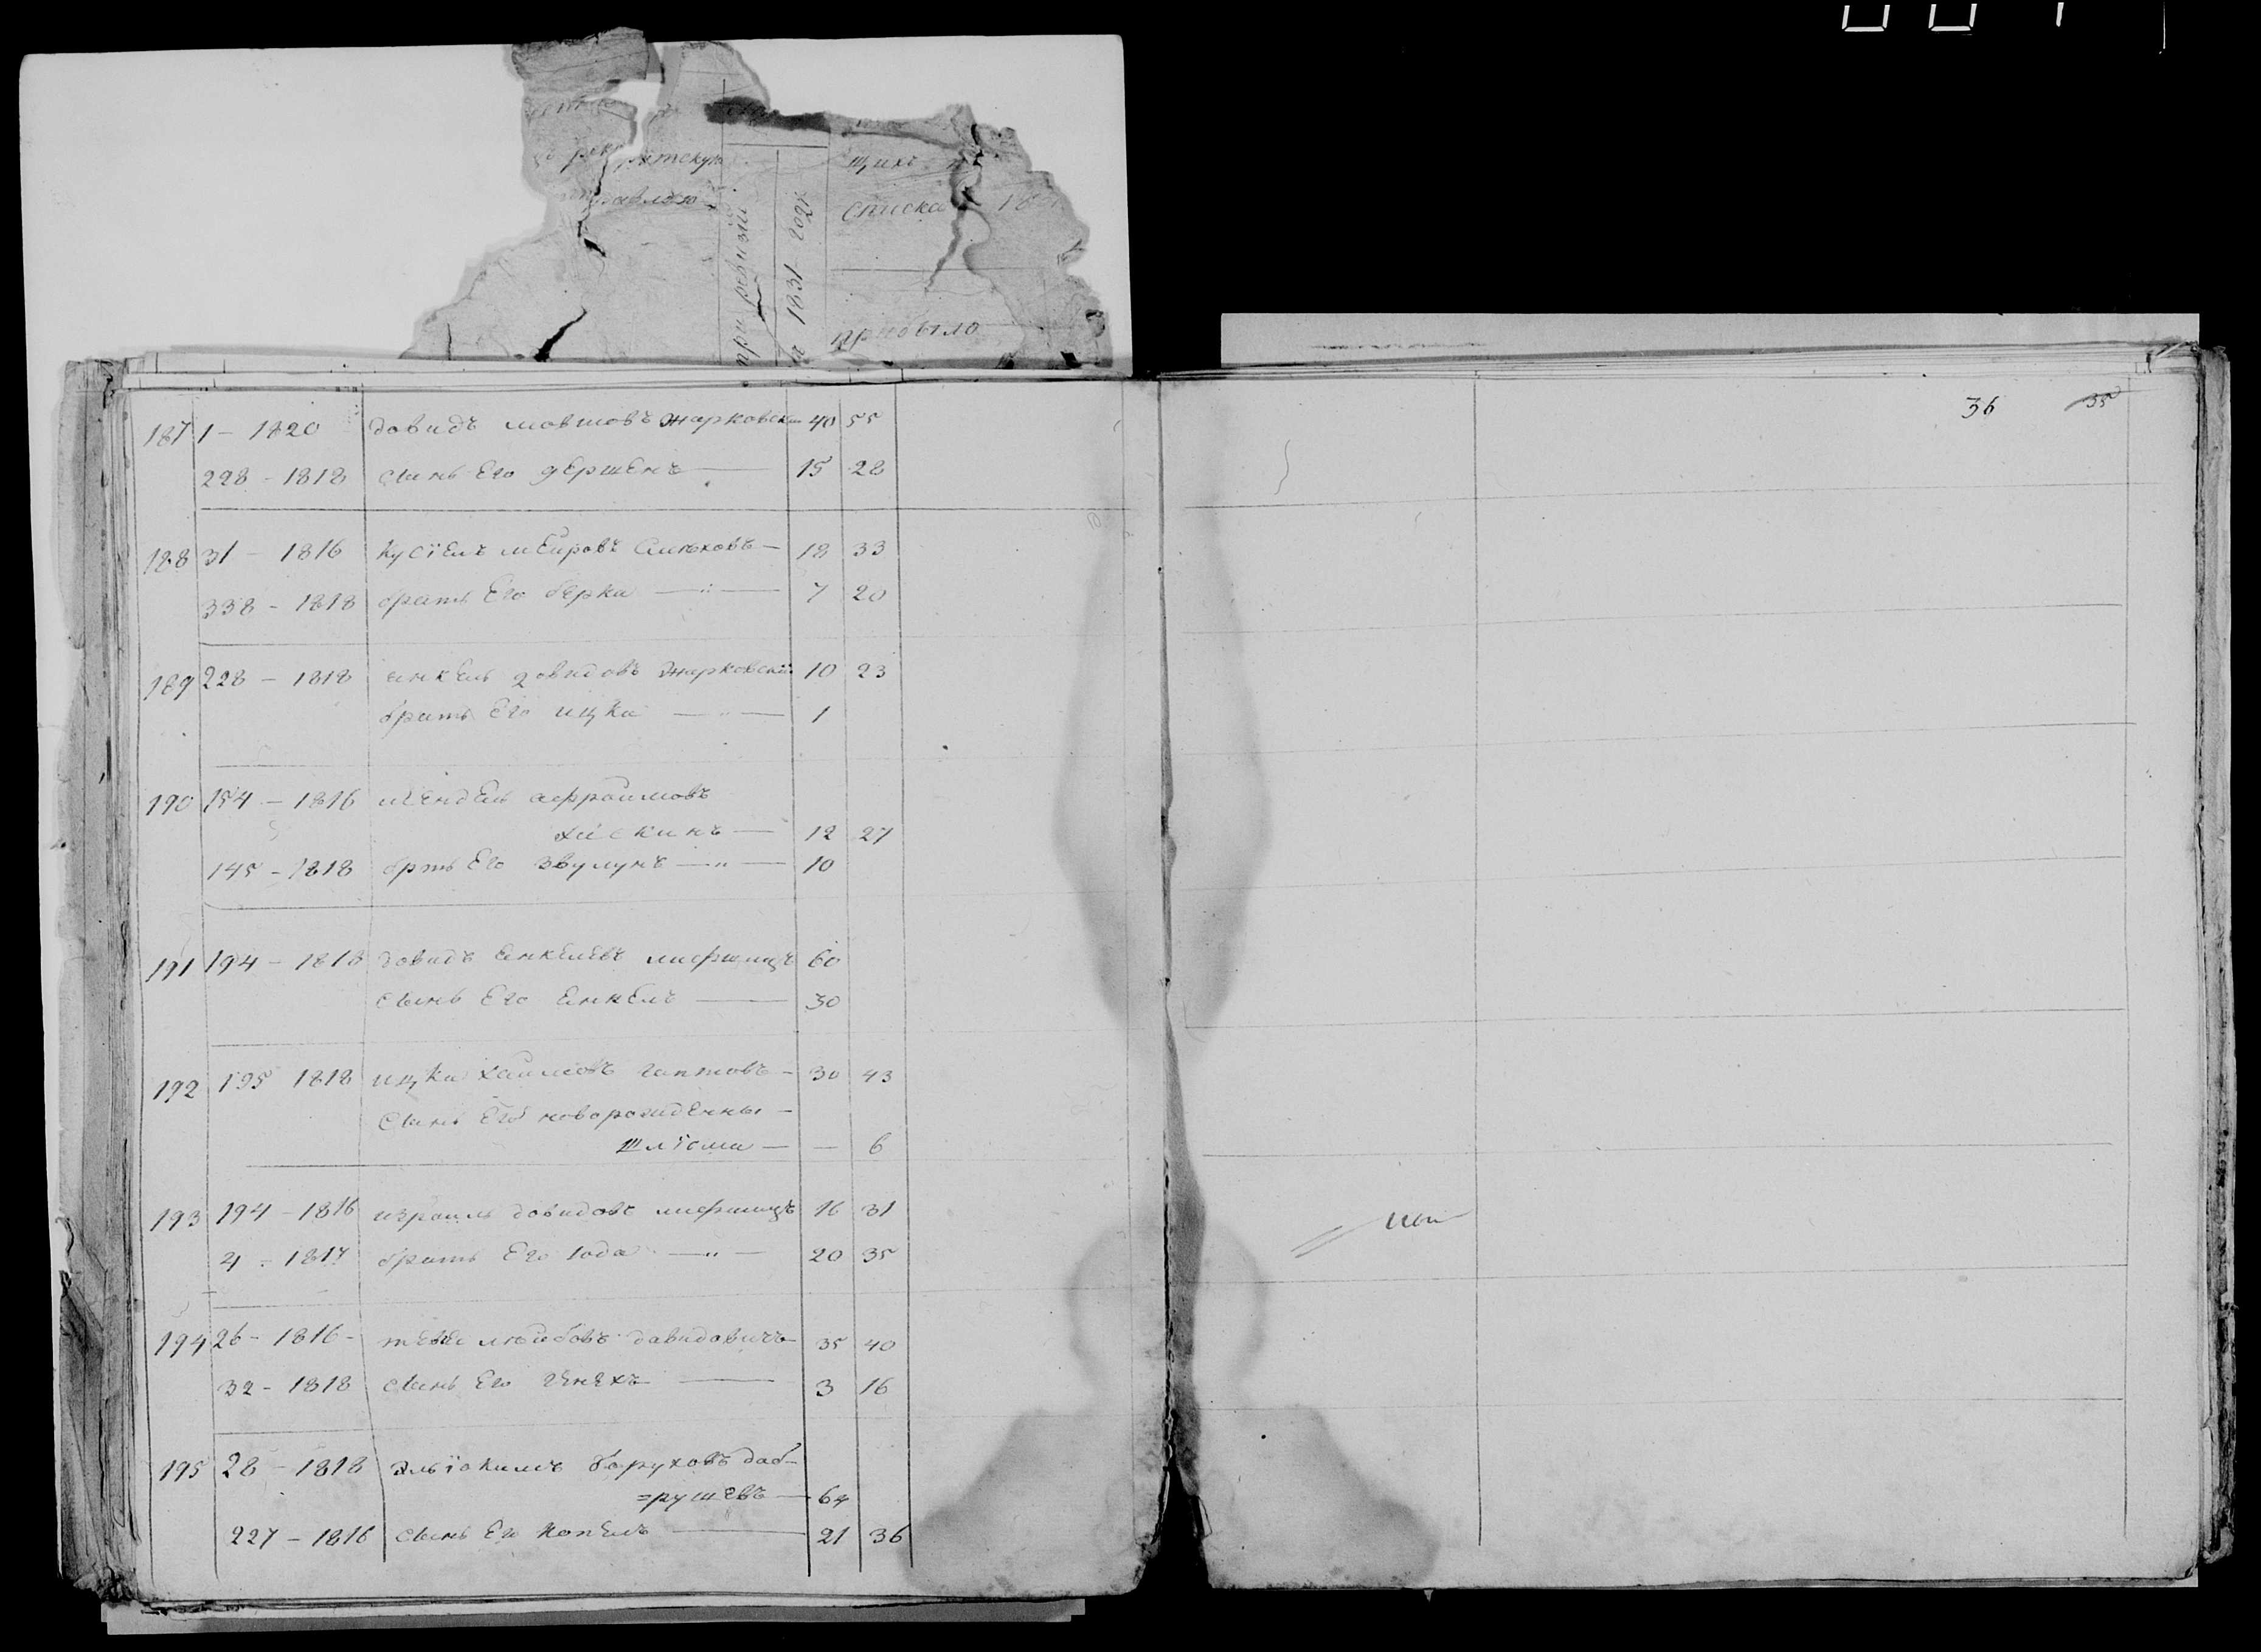 рекрутскую
щихъ
списка
при ревизіи
1831 года
прибыло
36 35
187 1 – 1820 довидъ мовшовъ Жарковски 40 55
228 – 1818 сынъ Его гершенъ — 15 28
188 31 – 1816 кусїелъ мЕировъ — 18 33
338 – 1818 братъ Его берка — 7 20
189 228 – 1818 янкель довидовъ Жарковскій 10 23
братъ Его ицка — 1
190 154 – 1816 мЕндель афраимовъ
хаскинъ — 12 27
145 – 1818 братъ Его Звулунъ — 10
191 194 – 1818 довидъ янкелевъ лифшицъ 60
сынъ Его янкелъ — 30
192 195 1818 ицка хаимовъ — 30 43
сынъ Его новорожденны –
шлїома — — 6
193 194 – 1816 израиль довидовъ лифшицъ 16 31
4 – 1817 братъ Его Іода — 20 35
194 26 – 1816 – тевье лейбовъ давидовичъ 35 40
32 – 1818 сынъ Его генехъ — 3 16
195 28 – 1818 Эльїокимъ боруховъ доб–
=рушевъ — 64
227 – 1816 сынъ Его копелъ — 21 36